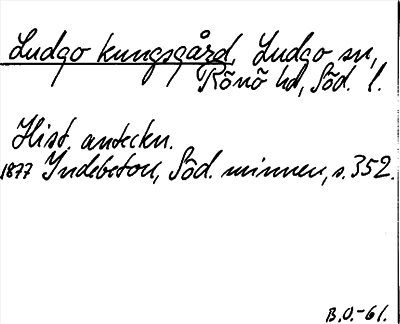 Ludgo kungsgård, Ludgo sn,
Rönö hd, Söd. l.
Hist. anteckn.
1877 Indebetou, Söd. minnen, s. 352.
B.O.-61.